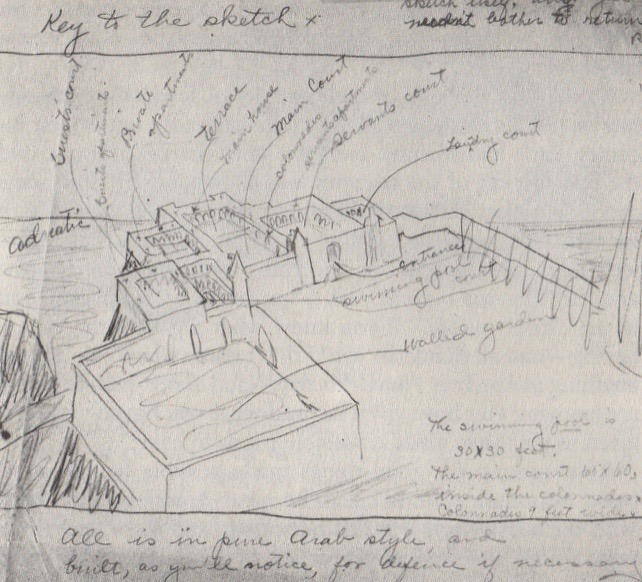 sketch
Key to the sketch x
needn't bother to return
guests' court
Private
apartments
terrace
main house
Main Court
colonnades
servants' apartments
Servants court
Laundry court
adriatic
entrance
swimming pool
court
walled garden
The swimming pool is
30 x 30 feet.
The main court
inside the colonnades.
Colonnades 9 feet wide.
All is in pure Arab style, and
built, as you'll notice, for defence if necessary